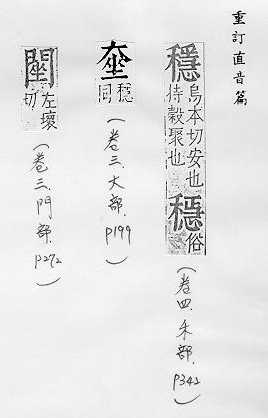 重訂直音篇
穩 烏本切安也
持穀聚也
俗
(卷四、禾部、P342)
穩
同
(卷三、大部、P199)
左壞
切
(卷三、門部、P272)